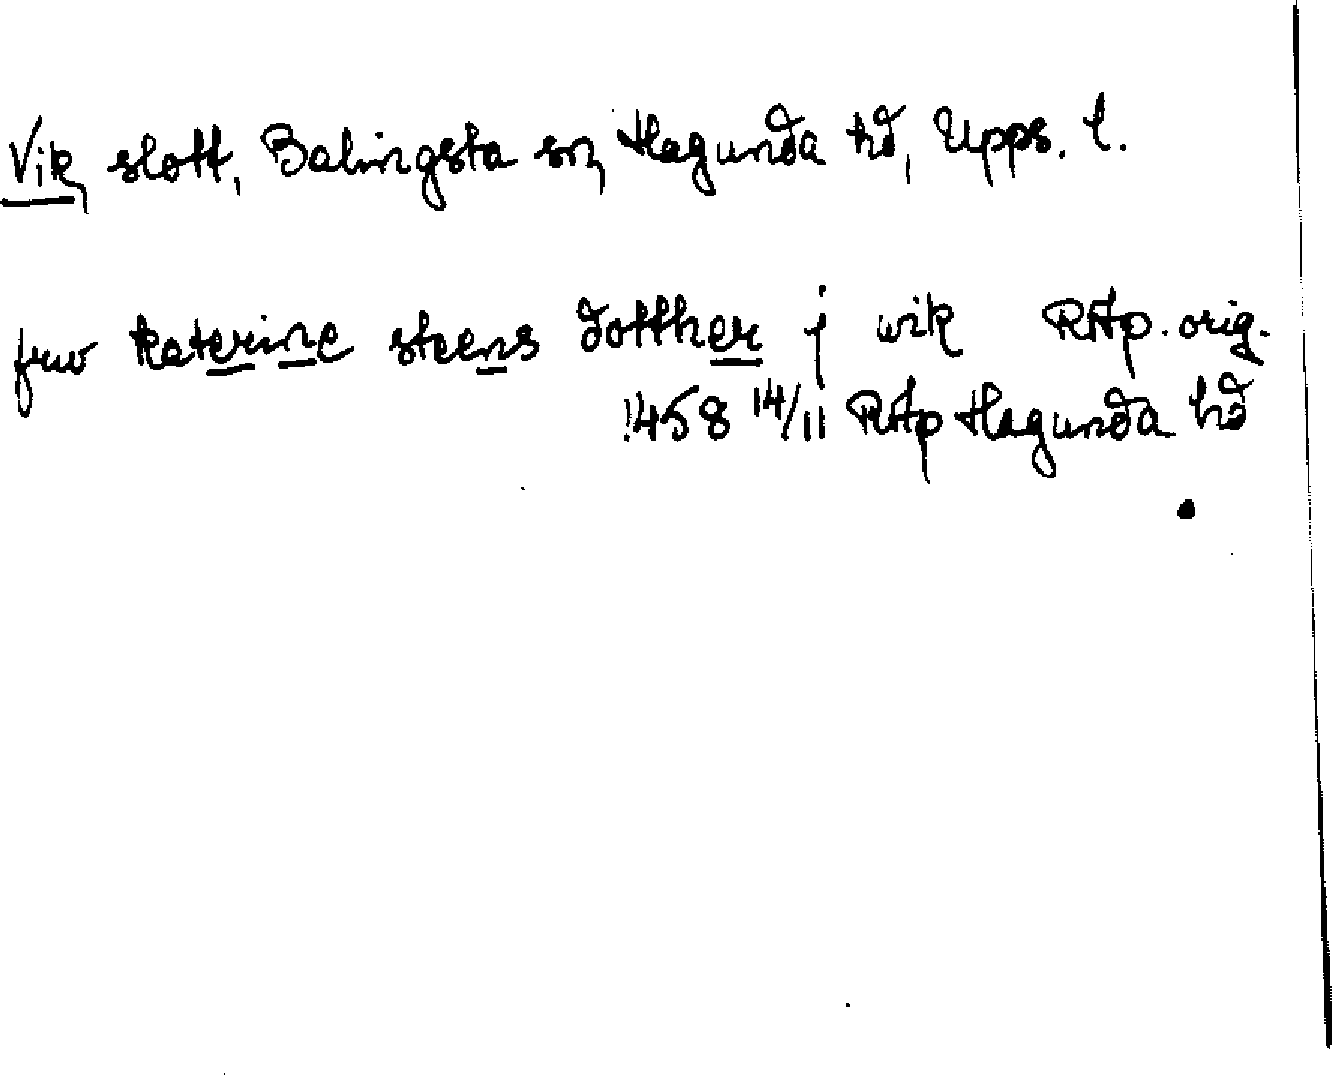 Vik, slott, Balingsta sn, Hagunda hd, Upps. l.
frw katerine steens dotther j wik RAp. orig.
1458 14/11 RAp Hagunda hd